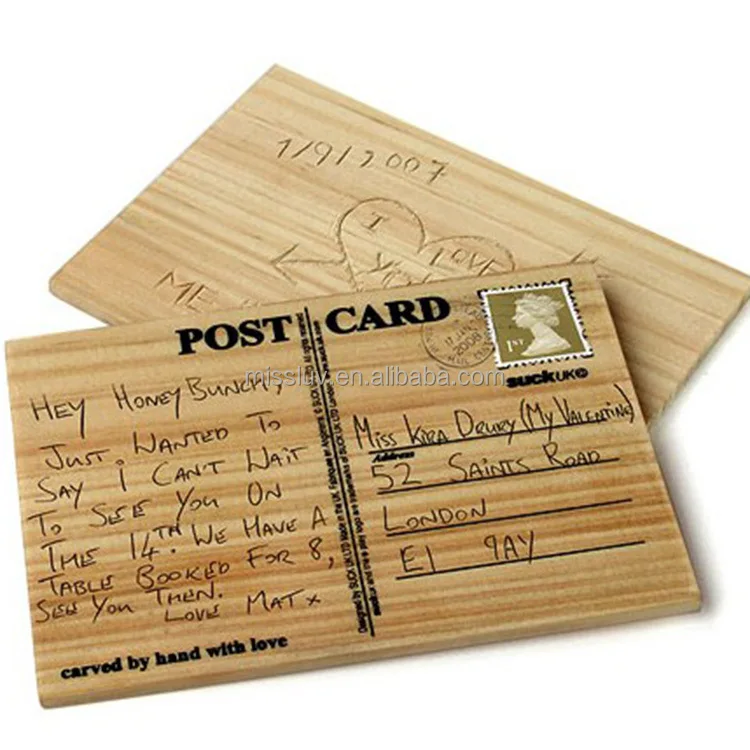 1/9/2007
I LOVE
YOU
ME
POST CARD
1ST
2008
SUCK UK©
HEY HONEY BUNCH,
JUST WANTED TO
SAY I CAN'T WAIT
TO SEE YOU ON
THE 14TH. WE HAVE A
TABLE BOOKED FOR 8,
SEE YOU THEN.
LOVE MAT x
carved by hand with love
MISS KIRA DRURY (MY VALENTINE)
Address
52 SAINTS ROAD
LONDON
E1 9AY
missluv.en.alibaba.com